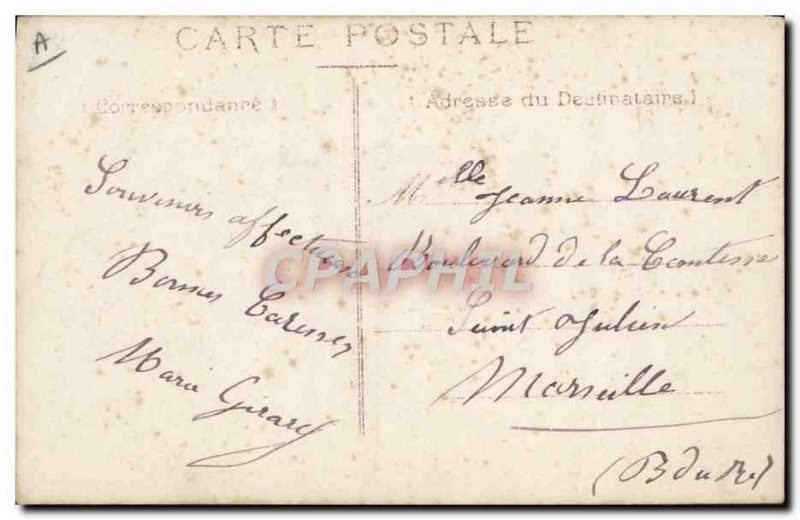 A
CARTE POSTALE
(Correspondance)
(Adresse du Destinataire)
Souvenirs affectueux
Bonnes Caresses
Marie Girard
Melle Jeanne Laurent
Boulevard de la Comtesse
Saint Julien
Marseille
(B du R)
CPAPHIL